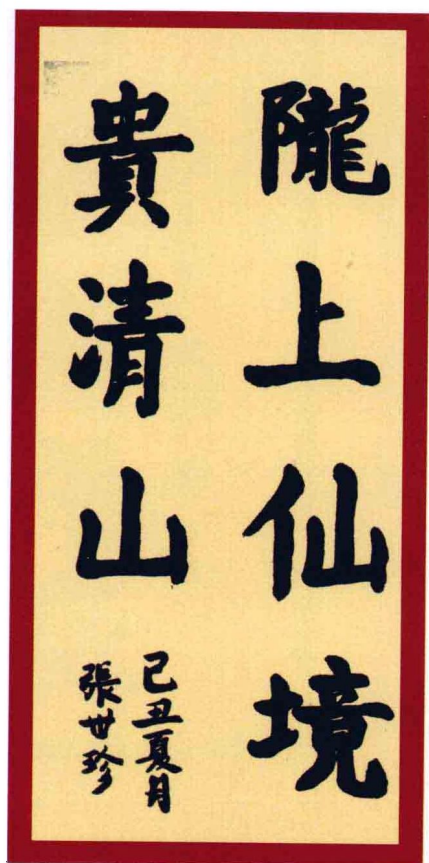 隴上仙境
貴清山
己丑夏月
張世珍